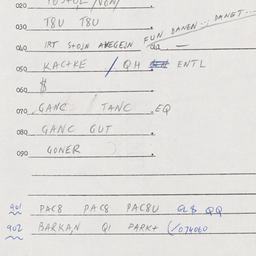 020
030 T8U T8U
040 IRT AKEGELN da —
FUN DANEN... DANET...
050 KACHKE / QH ENTL
060 $
070 GANC TANC .EQ
080 GANC GUT
090 GONER
901 PAC8 PAC8 PAC8U QQ
902 BARKAN QI PARK+ (/074060